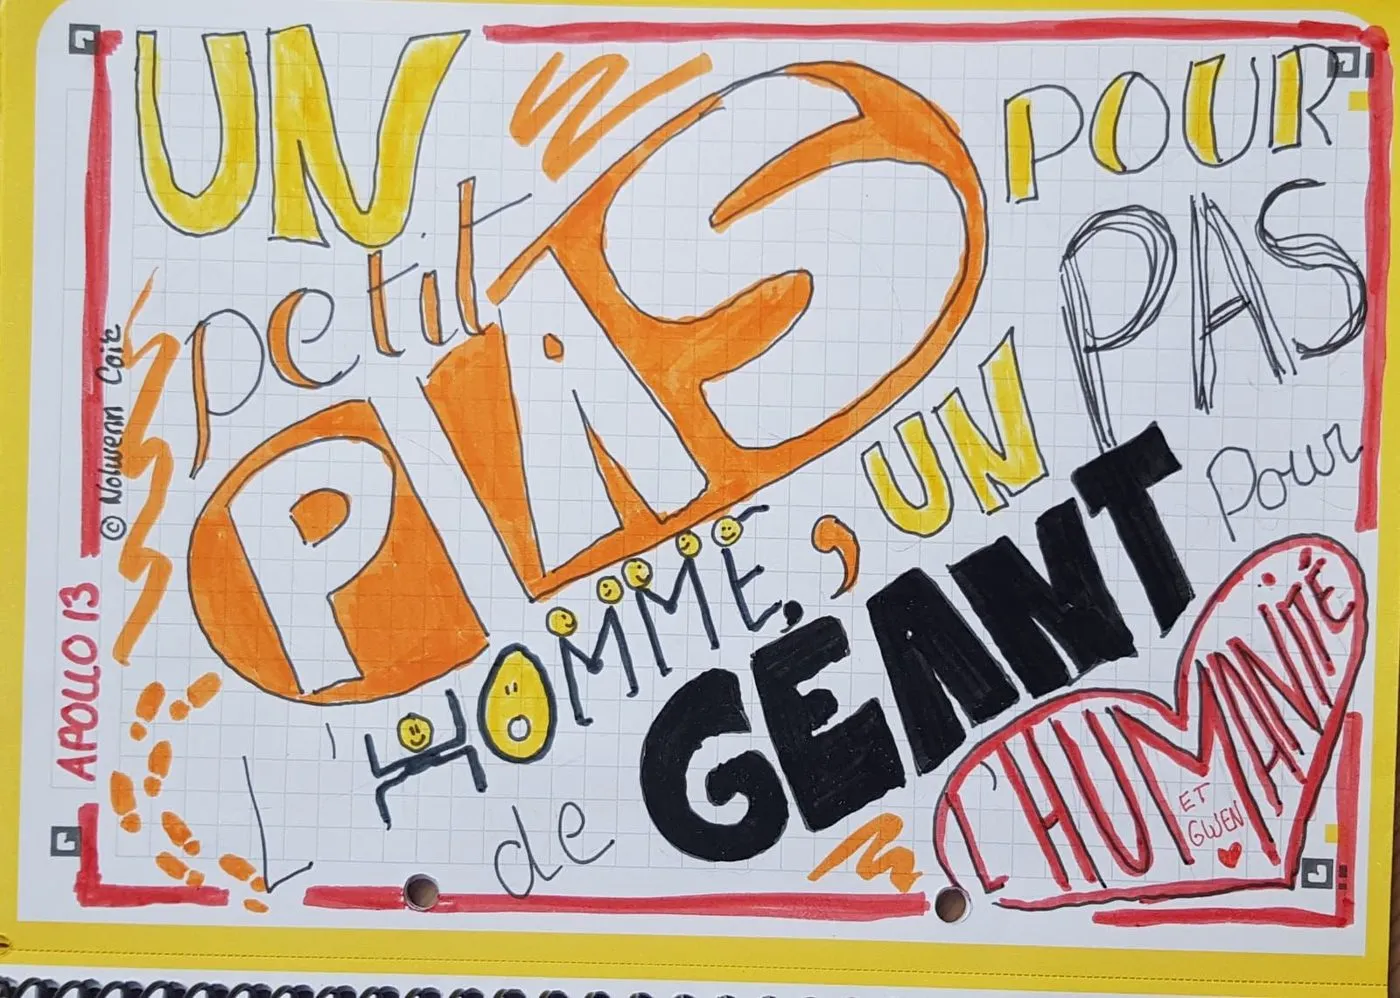 UN
petit
PAS
POUR
L'HOMME,
, UN
PAS
de
GÉANT
pour
L'HUMANITÉ
ET
GWEN
APOLLO 13
© Nolwenn Coïc